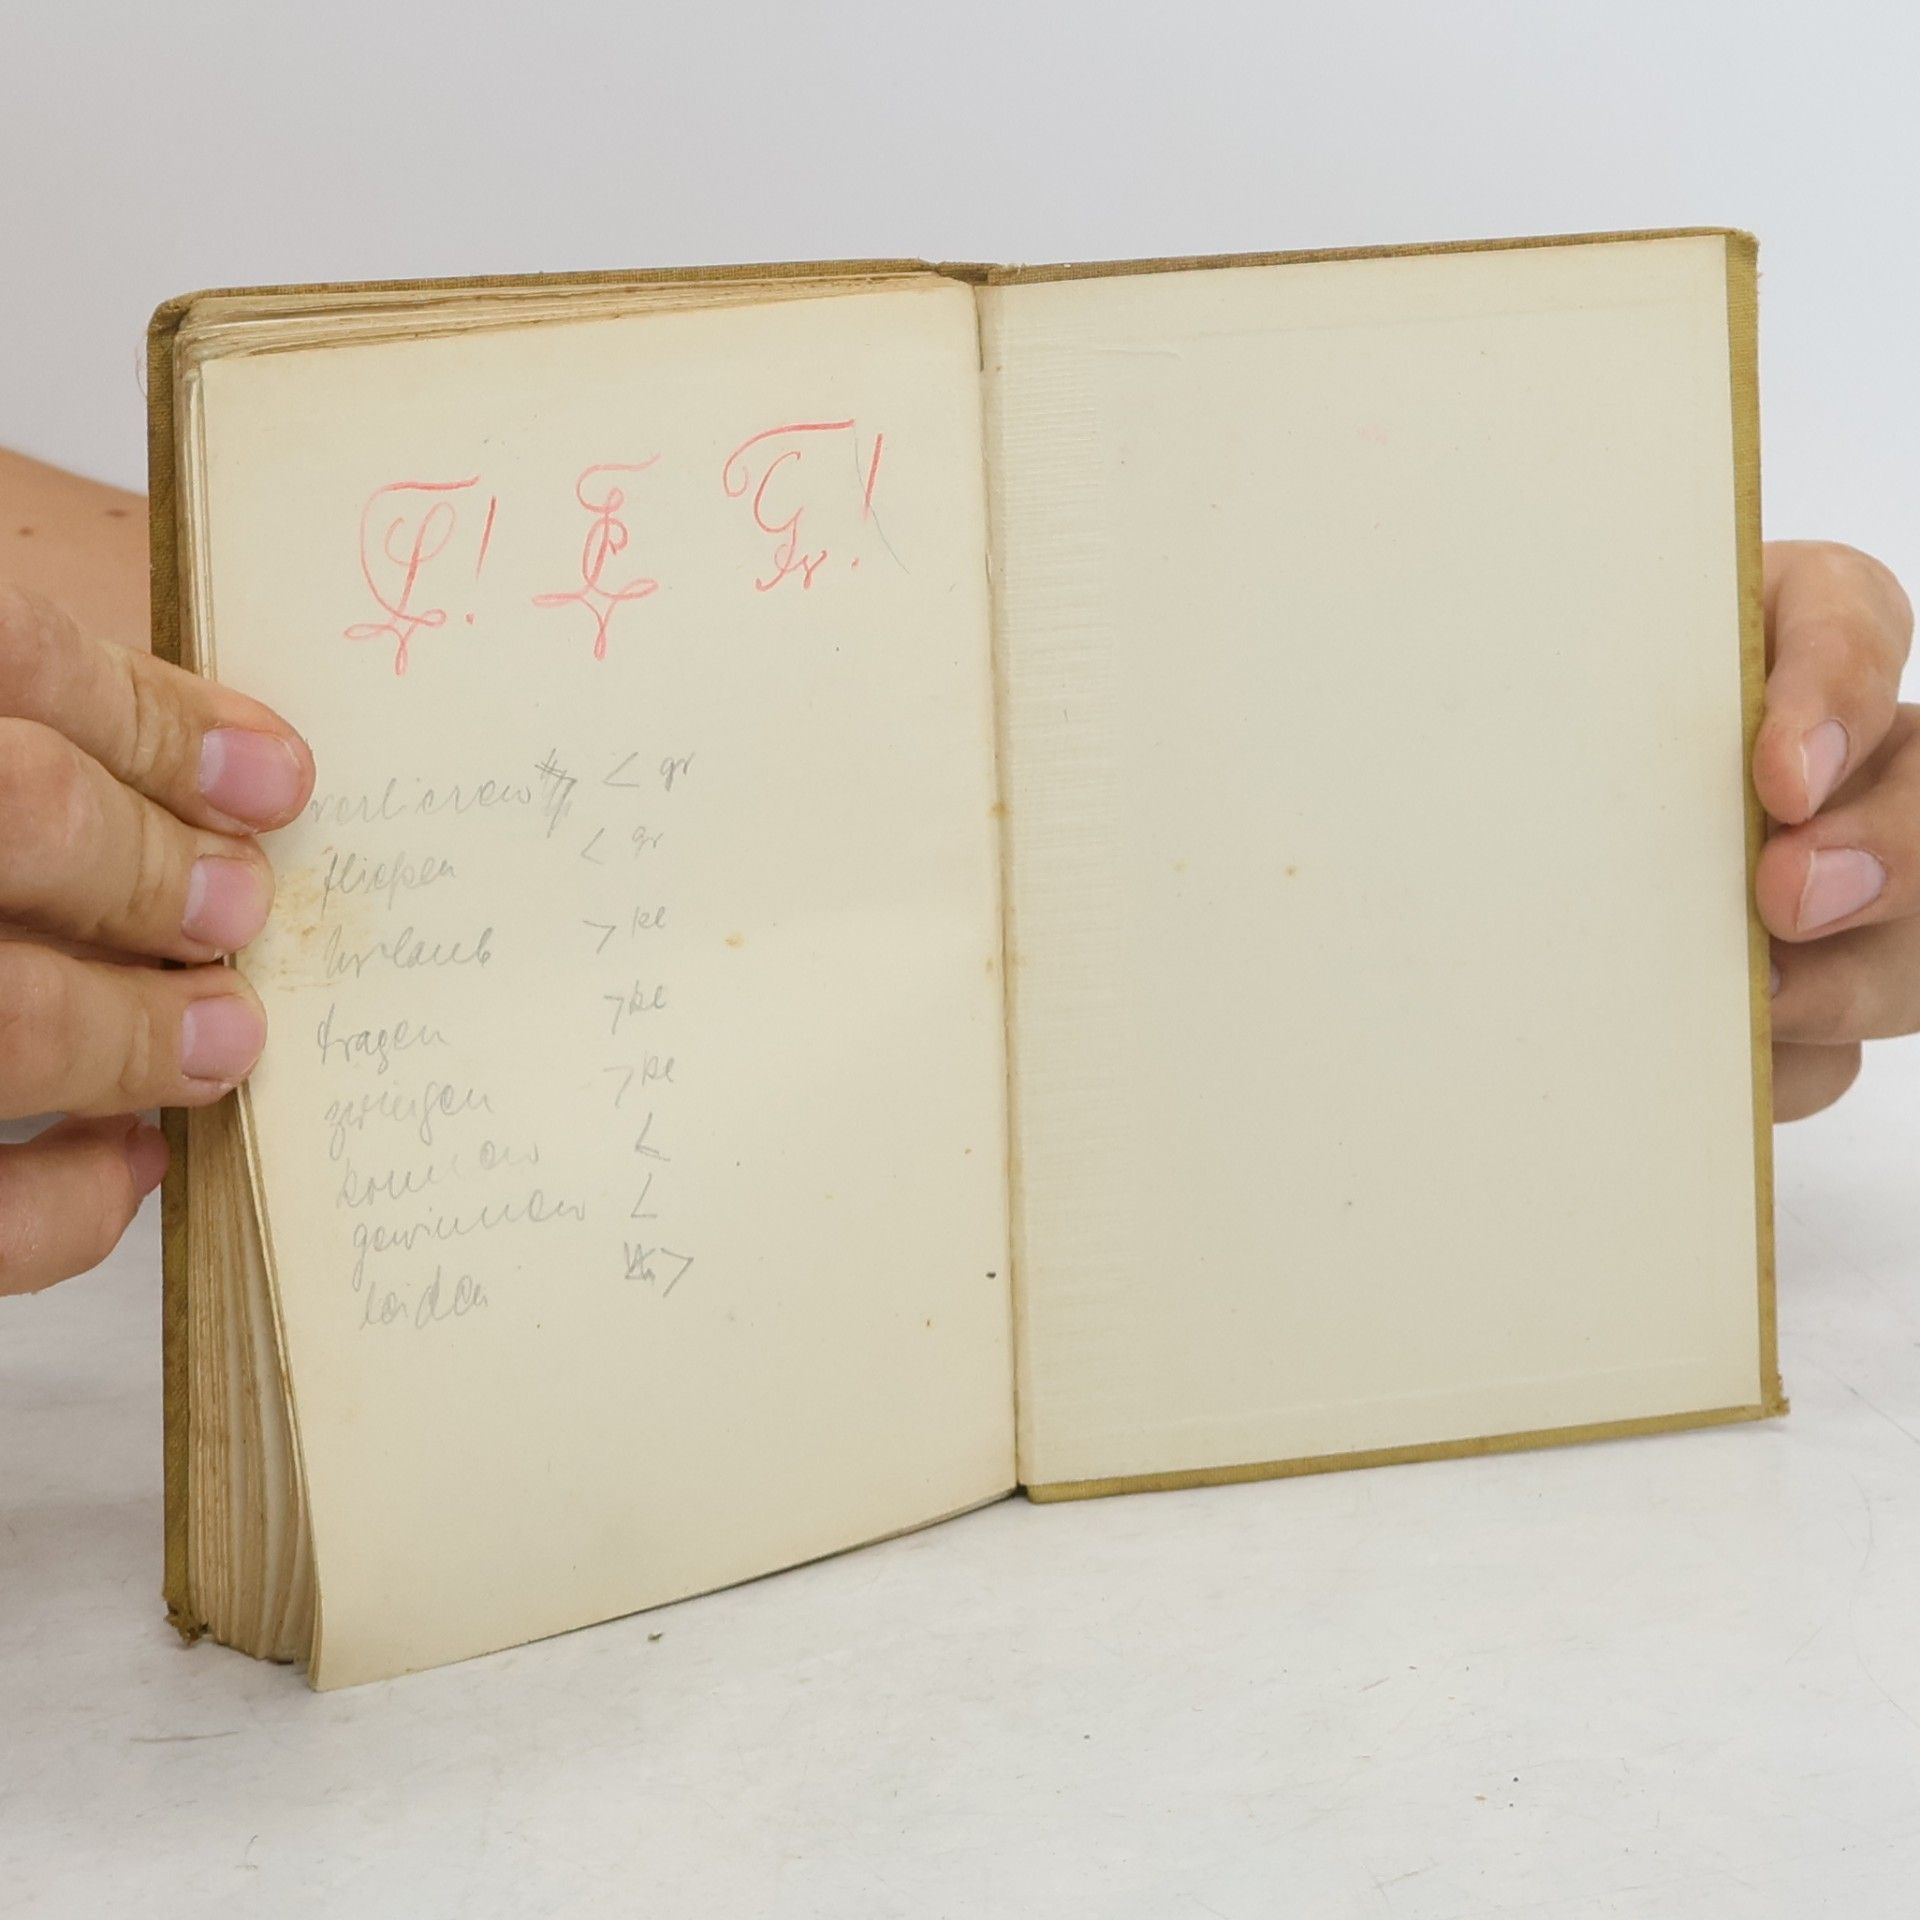 verlieren < gr
fließen < gr
Urlaub > kl
tragen > kl
zwingen > kl
kommen <
gewinnen <
leiden >